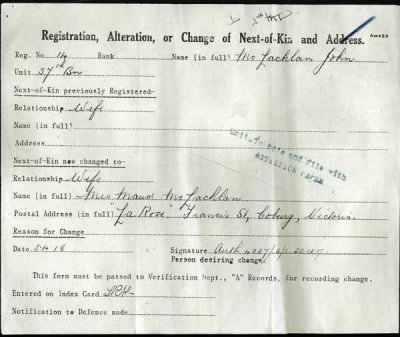 Registration, Alteration, or Change of Next-of-Kin and Address.
Reg. No. Rank Name (in full) McLachlan John
Unit 37th Bn
Next-of-Kin previously Registered-
Relationship Wife
Name (in full)
Address
Unit-To Note and File with
ATTESTATION PAPER
Next-of-Kin now changed to-
Relationship Wife
Name (in full) Mrs Maud McLachlan
Postal Address (in full) "La Rose" Francis St, Coburg, Victoria.
Reason for Change
Date Signature Auth
Person desiring change.
This form must be passed to Verification Dept., "A" Records, for recording change.
Entered on Index Card
Notification to Defence made